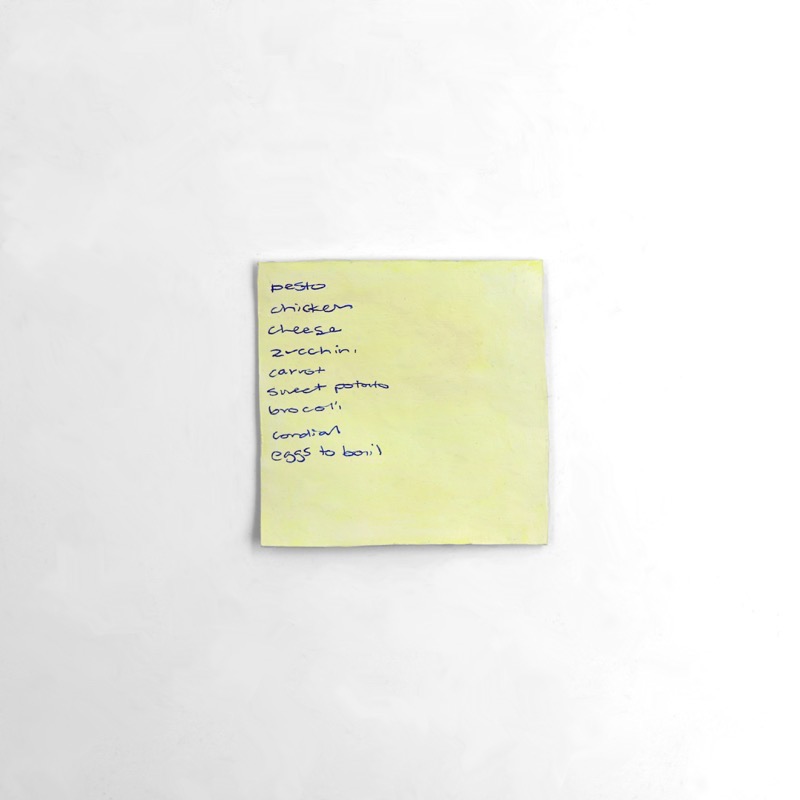 pesto
chicken
cheese
zucchini
carrot
sweet potato
brocoli
cordial
eggs to boil